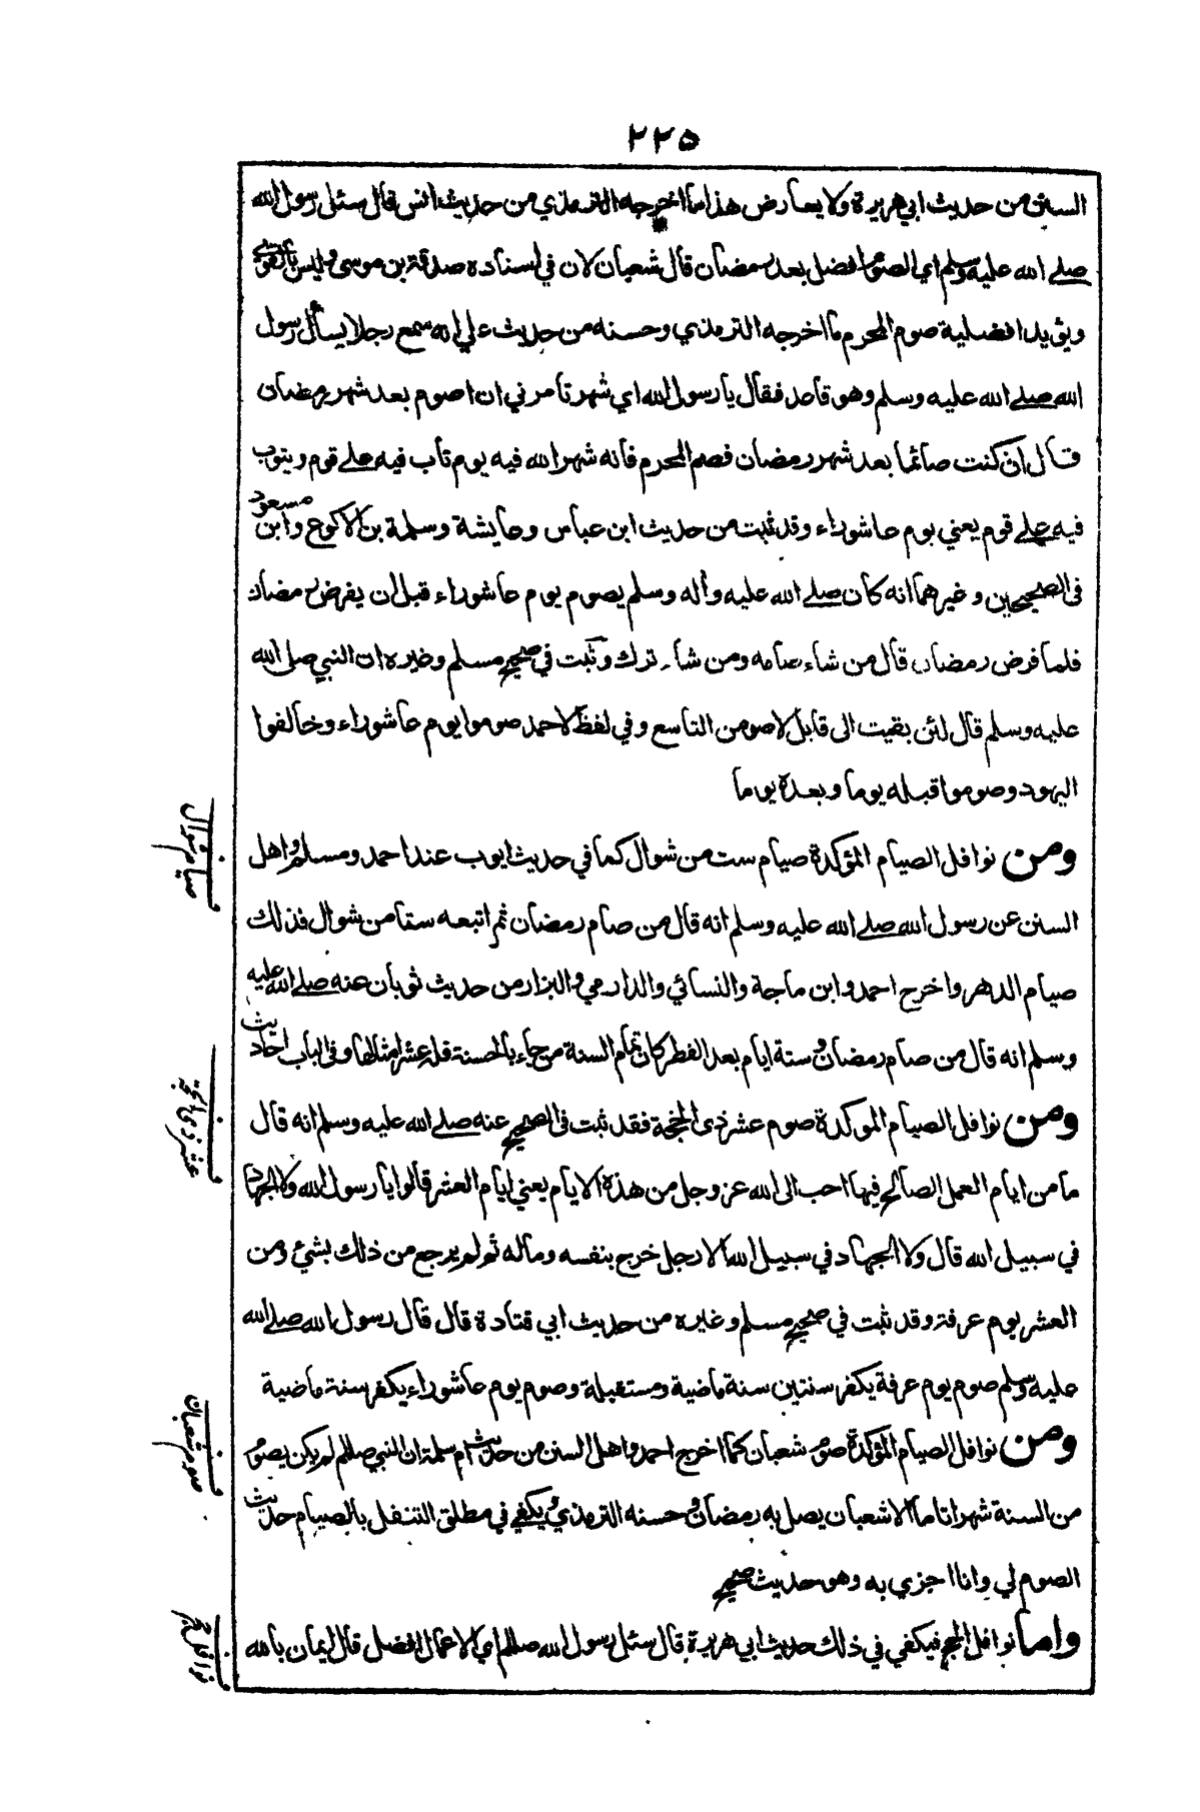 ٢٢٥
السنن من حديث ابي هريرة ولا يعارض هذا ما اخرجه الترمذي من حديث انس قال سئل رسول الله
صلے الله عليه وسلم اي الصوم افضل بعد رمضان قال شعبان لان في اسناده صدقة بن موسى وليس بالقوي
ويؤيد افضلية صوم المحرم ما اخرجه الترمذي وحسنه من حديث علي انه سمع رجلا يسأل رسول
الله صلے الله عليه وسلم وهو قاعد فقال يا رسول الله اي شهر تأمرني ان اصوم بعد شهر رمضان
قال ان كنت صائما بعد شهر رمضان فصم المحرم فانه شهر الله فيه يوم تاب فيه علے قوم ويتوب
فيه علے قوم يعني يوم عاشوراء وقد ثبت من حديث ابن عباس وعايشة وسلمة بن الاكوع وابن مسعود
فى الصحيحين وغيرهما انه كان صلے الله عليه وأله وسلم يصوم يوم عاشوراء قبل ان يفرض رمضان
فلما فرض رمضان قال من شاء صامه ومن شاء ترك وثبت في صحيح مسلم وغيره ان النبي صلى الله
عليه وسلم قال لئن بقيت الى قابل لاصومن التاسع وفي لفظ لاحمد صوموا يوم عاشوراء وخالفوا
اليهود وصوموا قبله يوما وبعده يوما
ومن نوافل الصيام المؤكدة صيام ست من شوال كما في حديث ايوب عند احمد ومسلم واهل
السنن عن رسول الله صلے الله عليه وسلم انه قال من صام رمضان ثم اتبعه ستا من شوال فذلك
صيام الدهر واخرج احمد وابن ماجة والنسائي والدارمي والبزار من حديث ثوبان عنه صلے الله عليه
وسلم انه قال من صام رمضان وستة ايام بعد الفطر كان تمام السنة من جاء بالحسنة فله عشر امثالها وفى الباب احاديث
ومن نوافل الصيام الموكدة صوم عشر ذى الحجة فقد ثبت فى الصحيح عنه صلے الله عليه وسلم انه قال
ما من ايام العمل الصالح فيها احب الى الله عز وجل من هذه الايام يعني ايام العشر قالوا يا رسول الله ولا الجهاد
في سبيل الله قال ولا الجهاد في سبيل الله الا رجل خرج بنفسه وماله ثم لم يرجع من ذلك بشئ ومن
العشر يوم عرفة وقد ثبت في صحيح مسلم وغيره من حديث ابي قتادة قال قال رسول الله صلے الله
عليه وسلم صوم يوم عرفة يكفر سنتين سنة ماضية ومستقبلة وصوم يوم عاشوراء يكفر سنة ماضية
ومن نوافل الصيام المؤكدة صوم شعبان كما اخرج احمد واهل السنن من حديث ام سلمة ان النبي صللم لم يكن يصوم
من السنة شهرا تاما الا شعبان يصل به رمضان وحسنه الترمذي ويكفي في مطلق التنفل بالصيام حديث
الصوم لي وانا اجزي به وهو حديث صحيح
واما نوافل الحج فيكفي في ذلك حديث ابي هريرة قال سئل رسول الله صللم اي الاعمال افضل قال ايمان بالله
صيام شوال
عشر ذي الحجة
صوم شعبان
نوافل حج